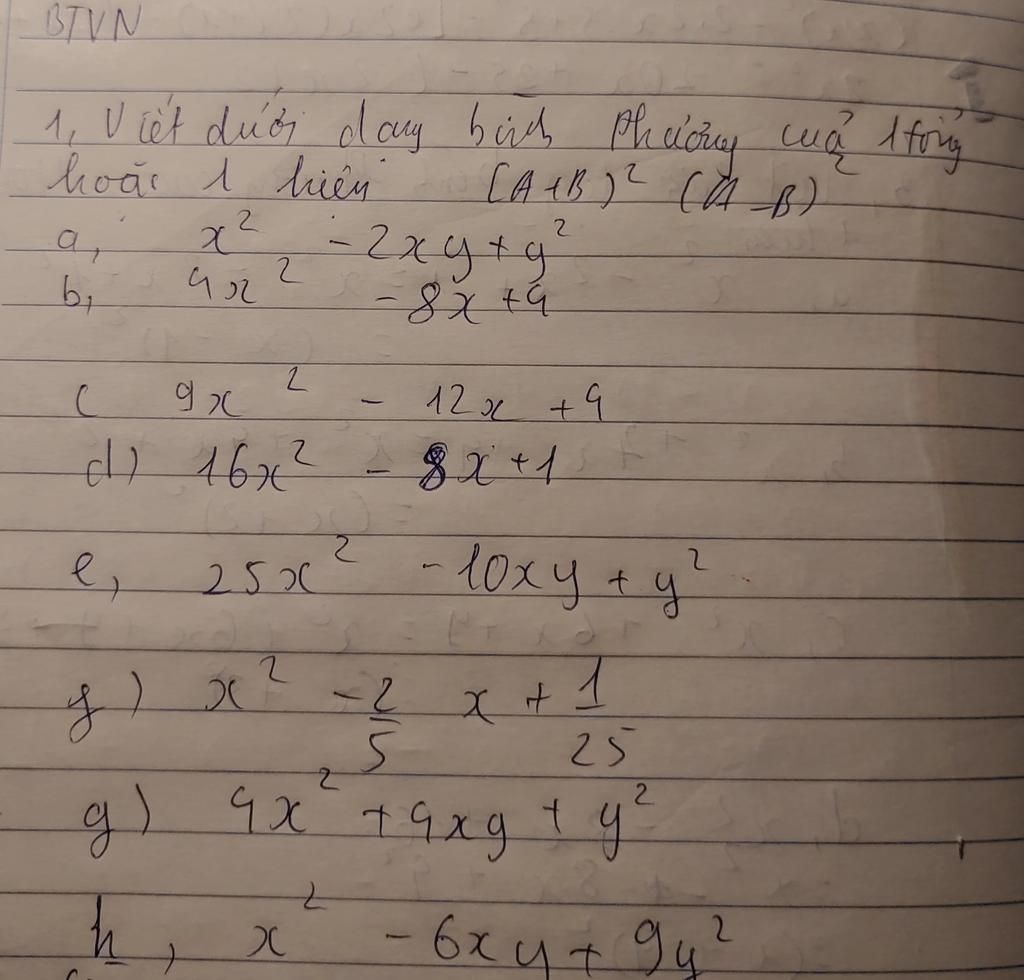 BTVN
1, Viết dưới dạng bình phương của 1 tổng
hoặc 1 hiệu (A+B)² (A-B)²
a, x² - 2xy + y²
b, 4x² - 8x + 4
c 9x² - 12x + 4
d) 16x² - 8x + 1
e, 25x² - 10xy + y²
f) x² - 2/5 x + 1/25
g) 4x² + 4xy + y²
h, x² - 6xy + 9y²